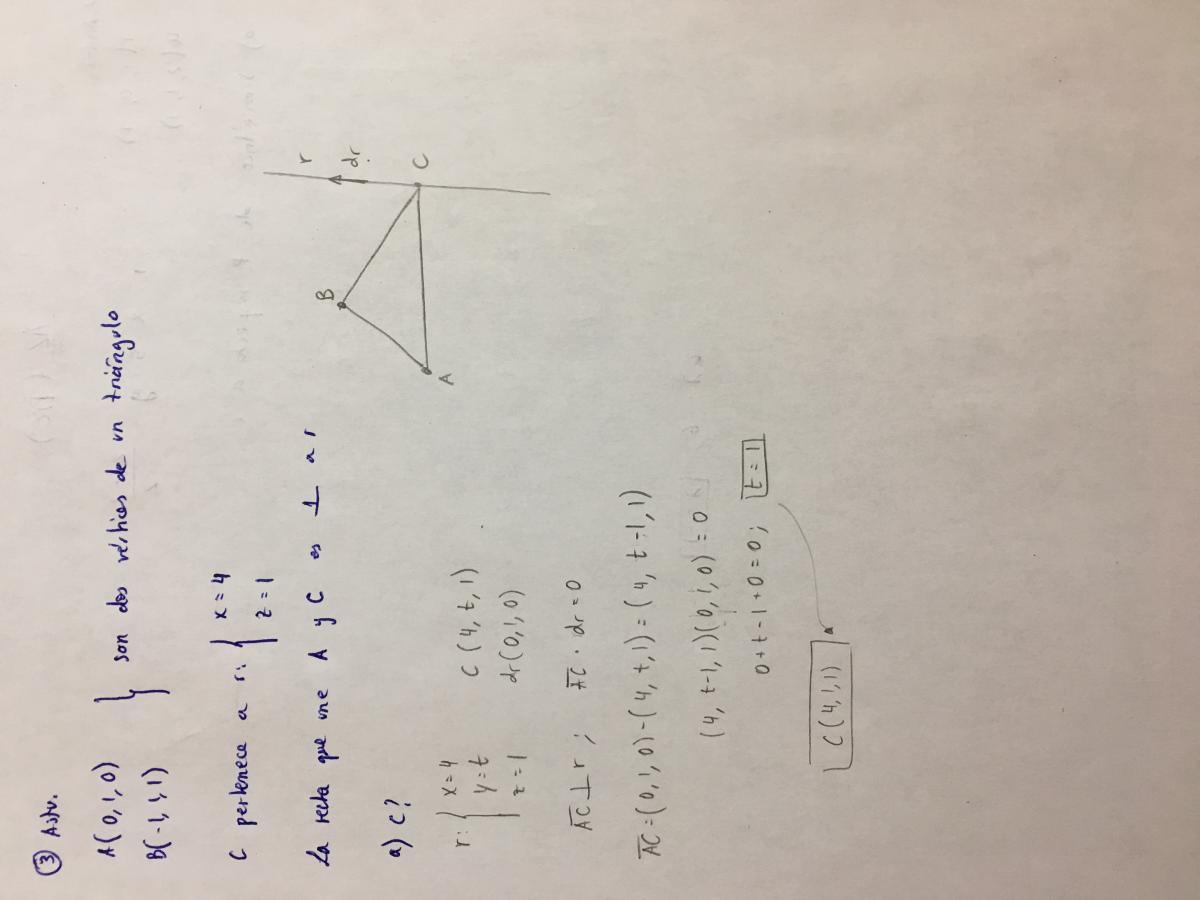 ③ Astv.
A(0,1,0)
B(-1,1,1) } son dos vértices de un triángulo
C pertenece a r: { x=4
z=1
La recta que une A y C es ⊥ a r
a) C?
B
A
r
dr
C
r: { x=4
y=t
z=1
C(4,t,1)
dr(0,1,0)
AC⊥r; AC·dr=0
AC=(0,1,0)-(4,t,1)=(4,t-1,1)
(4,t-1,1)(0,1,0)=0
0+t-1+0=0; t=1
C(4,1,1)